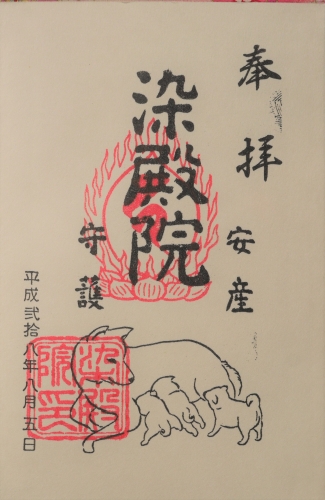 奉拝
安産
染殿院
守護
平成弐拾八年八月五日
染殿院印